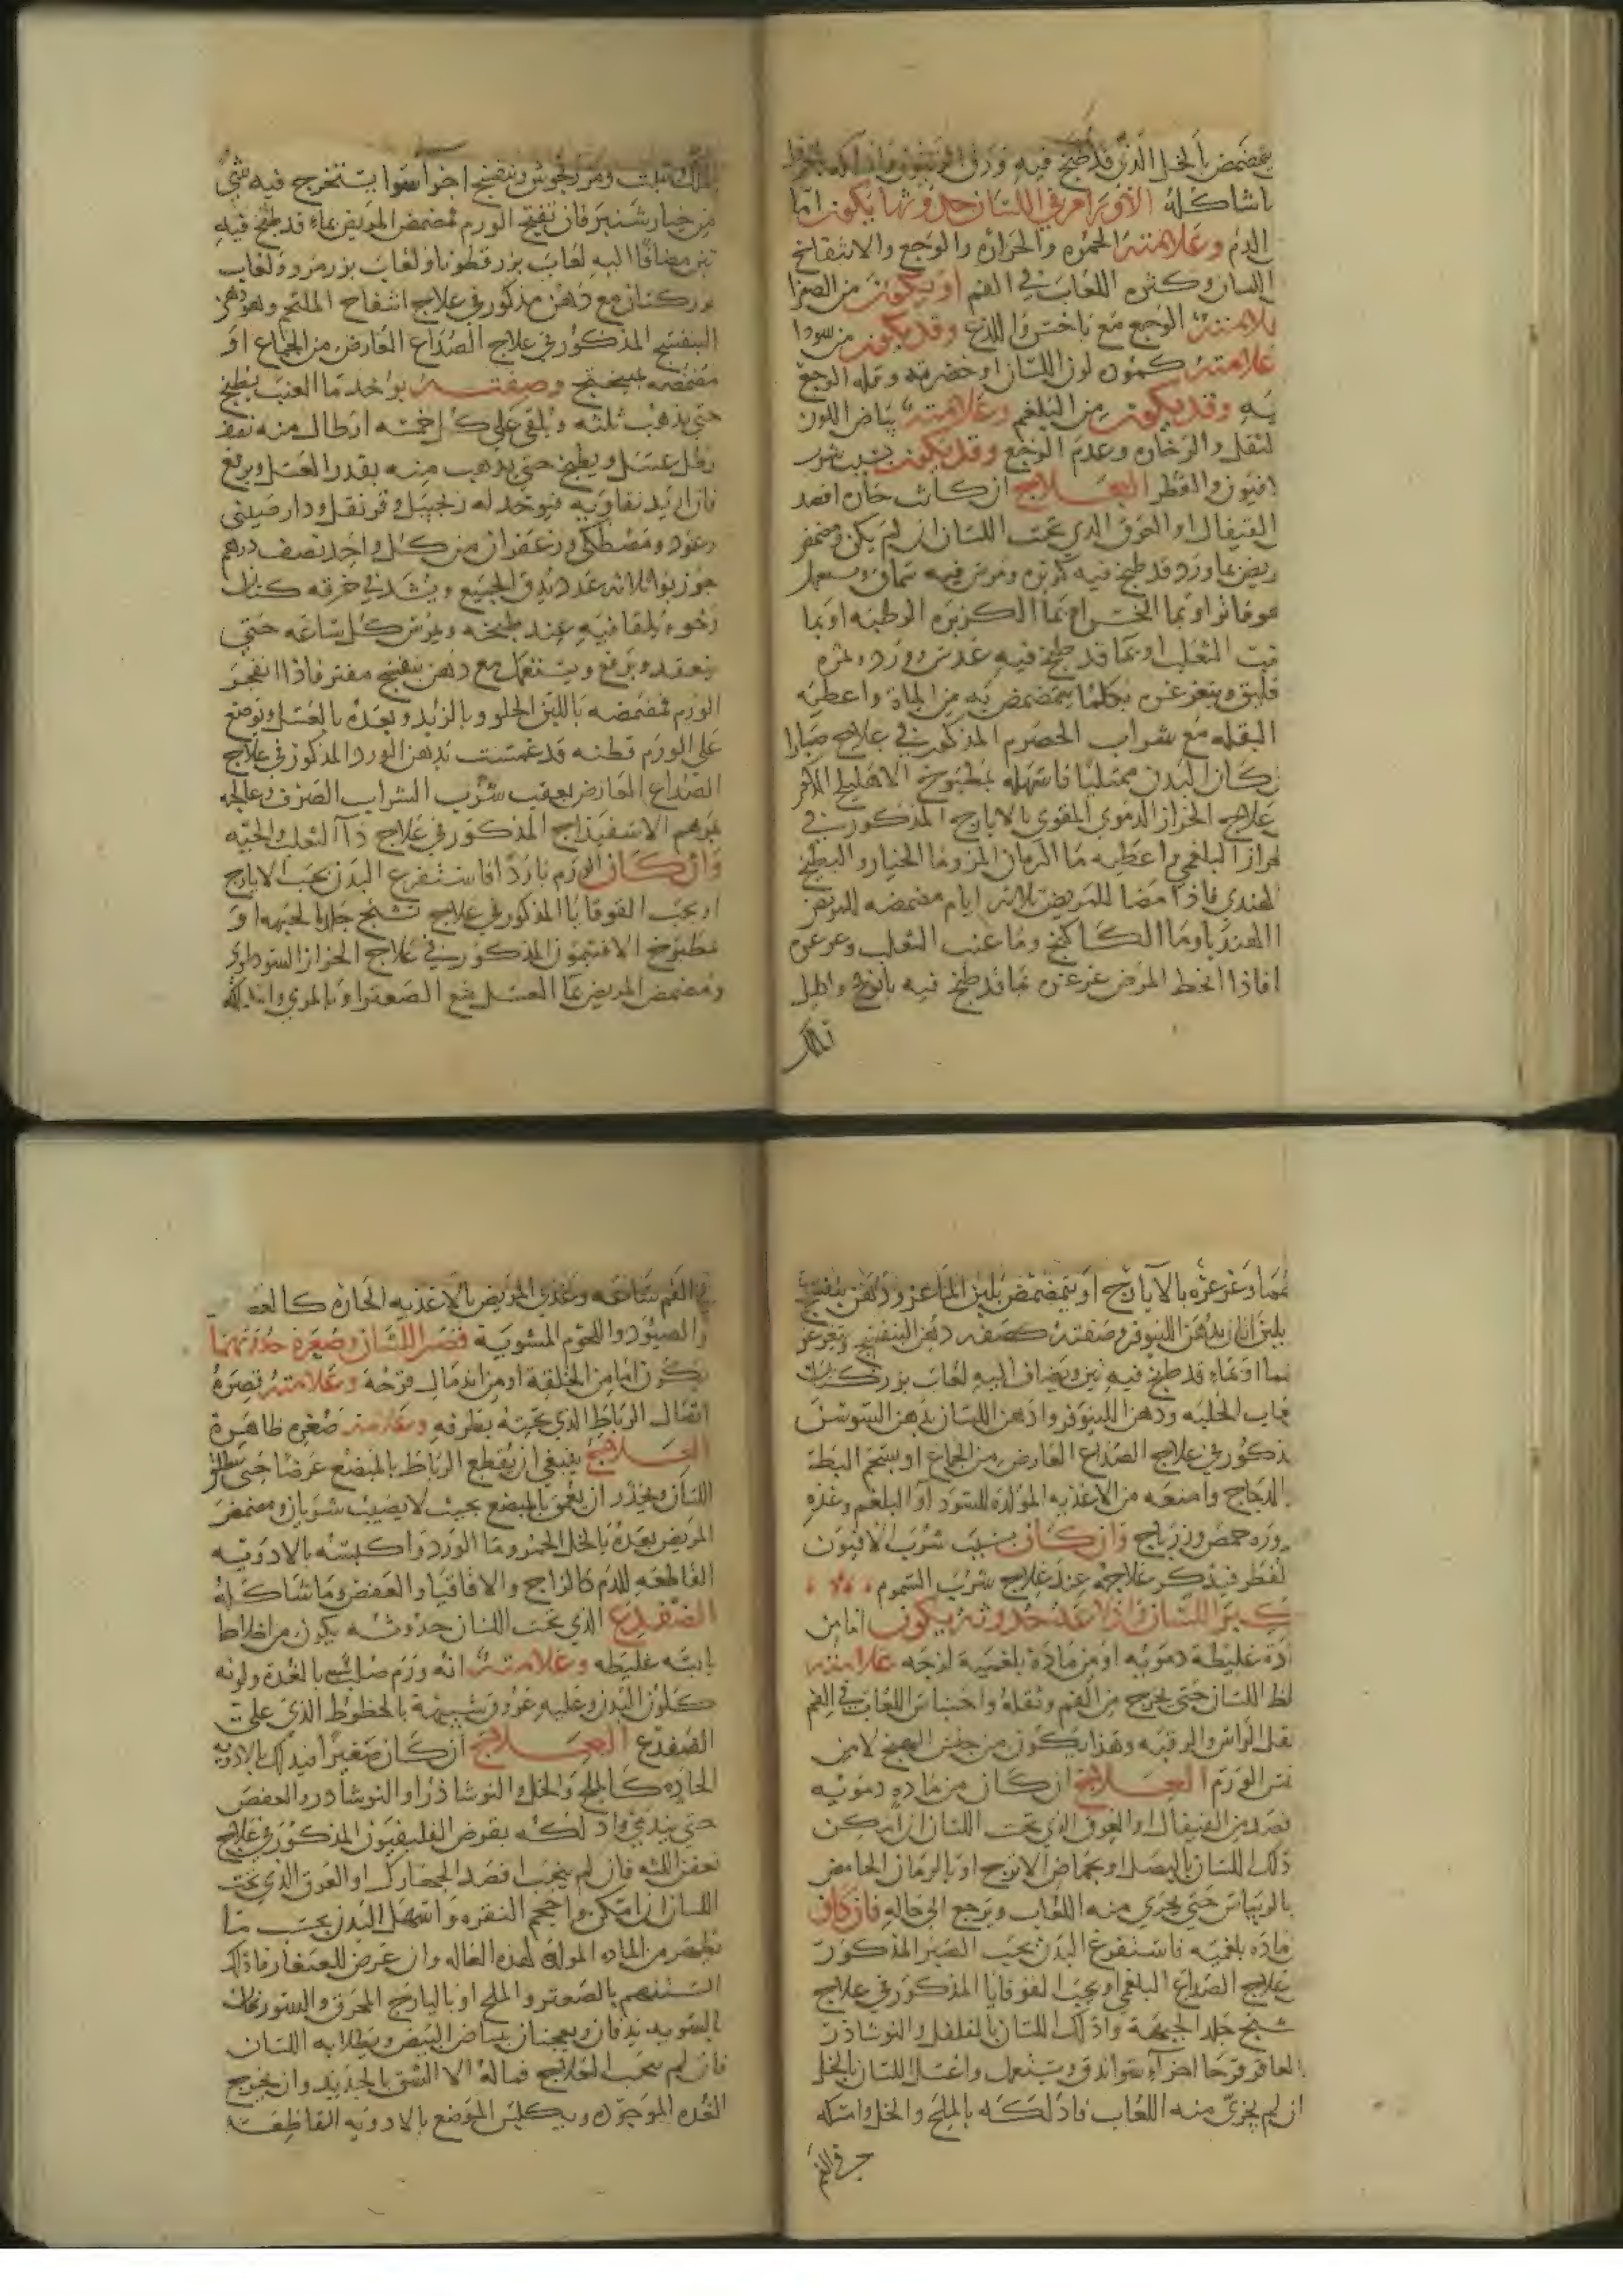 يتمضمض بالخل الذي قد طبخ فيه ورق الزيتون
ماشاكله الاورام في اللسان حدوثها يكون اما
الدم وعلامته الحمره والحراره والوجع والانتفاخ
اللسان وكثره اللعاب في الفم او يكون من الصفرا
علامته الوجع مع واللذع وقد يكون من سودا
علامته كموده لون اللسان او خضرته وقله الوجع
به وقد يكون من البلغم وعلامته بياض اللون
لثقل والرخاوه وعدم الوجع وقد يكون بسبب شرب
افيون والفطر العلاج ان كانت حاره افصد
القيفال او العرق الذي تحت اللسان ان لم يكن ومضمض
ريض بماورد قد طبخ فيه كزبره ومرس فيه سماق ويستعمل
او بما الخس او بما الكزبره الرطبه او بما
عنب الثعلب او بما قد طبخ فيه عدس وورد وثمره
ويتغرغر بكلما يتمضمض به من المياه واعطيه
البقله مع شراب الحصرم المذكور في علاج
ن كان البدن ممتليا فاسهله بمطبوخ الاهليلج
علاج الحزاز الدموي المقوي بالايارج المذكور في
حزاز البلغمي واعطيه ما الرمان المز وما الخيار والبطيخ
الهندي فاذا مضا للمريض ثلاثه ايام مضمضه
الهندبا وما الكاكنج وما عنب الثعلب وغرغره
افاذا انحط المرض غرغره بما قد طبخ فيه بابونج واكليل
الملك
الملك ومرزنجوش وبنفسج اجزا سوا يستخرج فيه شي
من خيارشنبر فان تفتح الورم فمضمض المريض بماء قد طبخ فيه
تين مضافا اليه لعاب بزر قطونا ولعاب بزر مرو ولعاب
بزر كتان مع دهن مذكور في علاج انتفاخ الملتحم وهو دهن
البنفسج المذكور في علاج الصداع العارض من الجماع او
مضمضه بميبختج وصفته يوخد ما العنب يطبخ
حتي يذهب ثلثه ويلقي علي كل خمسه ارطال منه نصف
رطل عسل ويطبخ حتي يذهب منه بقدر العسل ويرفع
فان اريد تقاويه فيوخد له زنجبيل وقرنفل ودار صيني
وعود ومصطكي وزعفران من كل واحد نصف درهم
جوز بوا ثلاثه عدد يدق الجميع ويشد في خرقه كتان
رخوه يلقا فيه عند طبخه ويمرس كل ساعه حتي
ينعقد ويرفع ويستعمل مع دهن بنفسج مفتر فاذا انفجر
الورم فمضمضه باللبن الحلو وبالزبد وبعده بالعسل ويوضع
علي الورم قطنه قد غمست بدهن الورد المذكور في علاج
الصداع العارض بعقيب شرب الشراب الصرف وعالجه
بمرهم الاسفيذاج المذكور في علاج داالثعلب والحيه
وان كان الورم باردا فاستفرغ البدن بحب الايارج
او بحب القوقايا المذكور في علاج تشنج جلد الجبهه او
مطبوخ الافتيمون المذكور في علاج الحزاز السوداوي
ومضمض المريض بما العسل مع الصعتر او بالمري
وغرغره بالايارج او يتمضمض بلبن الماعز ودهن بنفسج
بلبن اتان بدهن اللينوفر وصفته كصفه دهن البنفسج ويغرغر
بما او بماء قد طبخ فيه تين ويضاف اليه لعاب بزر كتان
لعاب الحلبه ودهن اللينوفر وادهن اللسان بدهن السوسن
مذكور في علاج الصداع العارض من الجماع او بشحم البطه
الدجاج وامنعه من الاغذيه المولده للسودا والبلغم وغذه
وره حمص وزرباج وان كان بسبب شرب الافيون
لفطر فيذكر علاجه عند علاج شرب السموم
كبر اللسان وادلاعه حدوثه يكون اما من
ادة غليظة دمويه او من مادة بلغمية لزجه علامته
لظ اللسان حتي يخرج من الفم وثقله واحتباس اللعاب في الفم
ثقل الراس والرقبه وهذا يكون من جنس التهيج لا من
جنس الورم العلاج ان كان من ماده دمويه
فصد من القيفال او العرق الذي تحت اللسان ان امكن
دلك اللسان بالبصل او بحماض الاترج او بالرمان الحامض
بالريباس حتي يجري منه اللعاب ويرجع الي حاله فان كان
ماده بلغميه فاستفرغ البدن بحب الصبر المذكور
علاج الصداع البلغمي او بحب القوقايا المذكور في علاج
تشنج جلد الجبهة وادلك اللسان بالفلفل والنوشاذر
العاقر قرحا اجزاء سوا تدق ويستعمل واغسل اللسان بالخل
ان لم يجري منه اللعاب فادلكه بالملح والخل وامسكه
في الفم
في الفم ساعه وغذي المريض بالاغذيه الحاره
والصيود واللحوم المشوية قصر اللسان وصغره حدوثهما
يكون اما من الخلقة او من اندمال قرحه وعلامته قصره
اتصال الرباط الذي تحته بطرفه وعلامته صغره ظاهرة
العلاج ينبغي ان يقطع الرباط بالمبضع عرضا حتي ينطلق
اللسان ويحذر ان يعمق بالمبضع بحيث لا يصيب شريان ومضمض
المريض بعده بالخل الخمر وما الورد واكبسه بالادويه
القاطعه للدم كالزاج والاقاقيا والعفص وما شاكله
الضفدع الذي تحت اللسان حدوثه يكون من اخلاط
غليظه وعلامته انه ورم صلب شبيه بالغدة ولونه
كلون البدن وعليه عروق شبيهة بالخطوط الذي علي
الضفدع العلاج ان كان صغيرا فيدلك بالادويه
الحاره كالملح والخل والنوشاذر او النوشادر والعفص
حتي يدمي وادلكه بقرص الفلفيون المذكور في علاج
تعفن اللثه فان لم ينجب افصد الجهارك او العرق الذي تحت
اللسان ان امكن واحجم النقره واسهل البدن بحسب ما
يظهر من الماده المولده لهذه العله وان عرض للصغار فادلك
السنتهم بالصعتر والملح او بالزاج المحرق والسورنجان
بالسويه يدقان ويعجنان ببياض البيض ويطلا به اللسان
فان لم يجب العلاج فماله الا الشق بالحديد وان يخرج
الغده الموجوده ويكبس الموضع بالادويه القاطعه